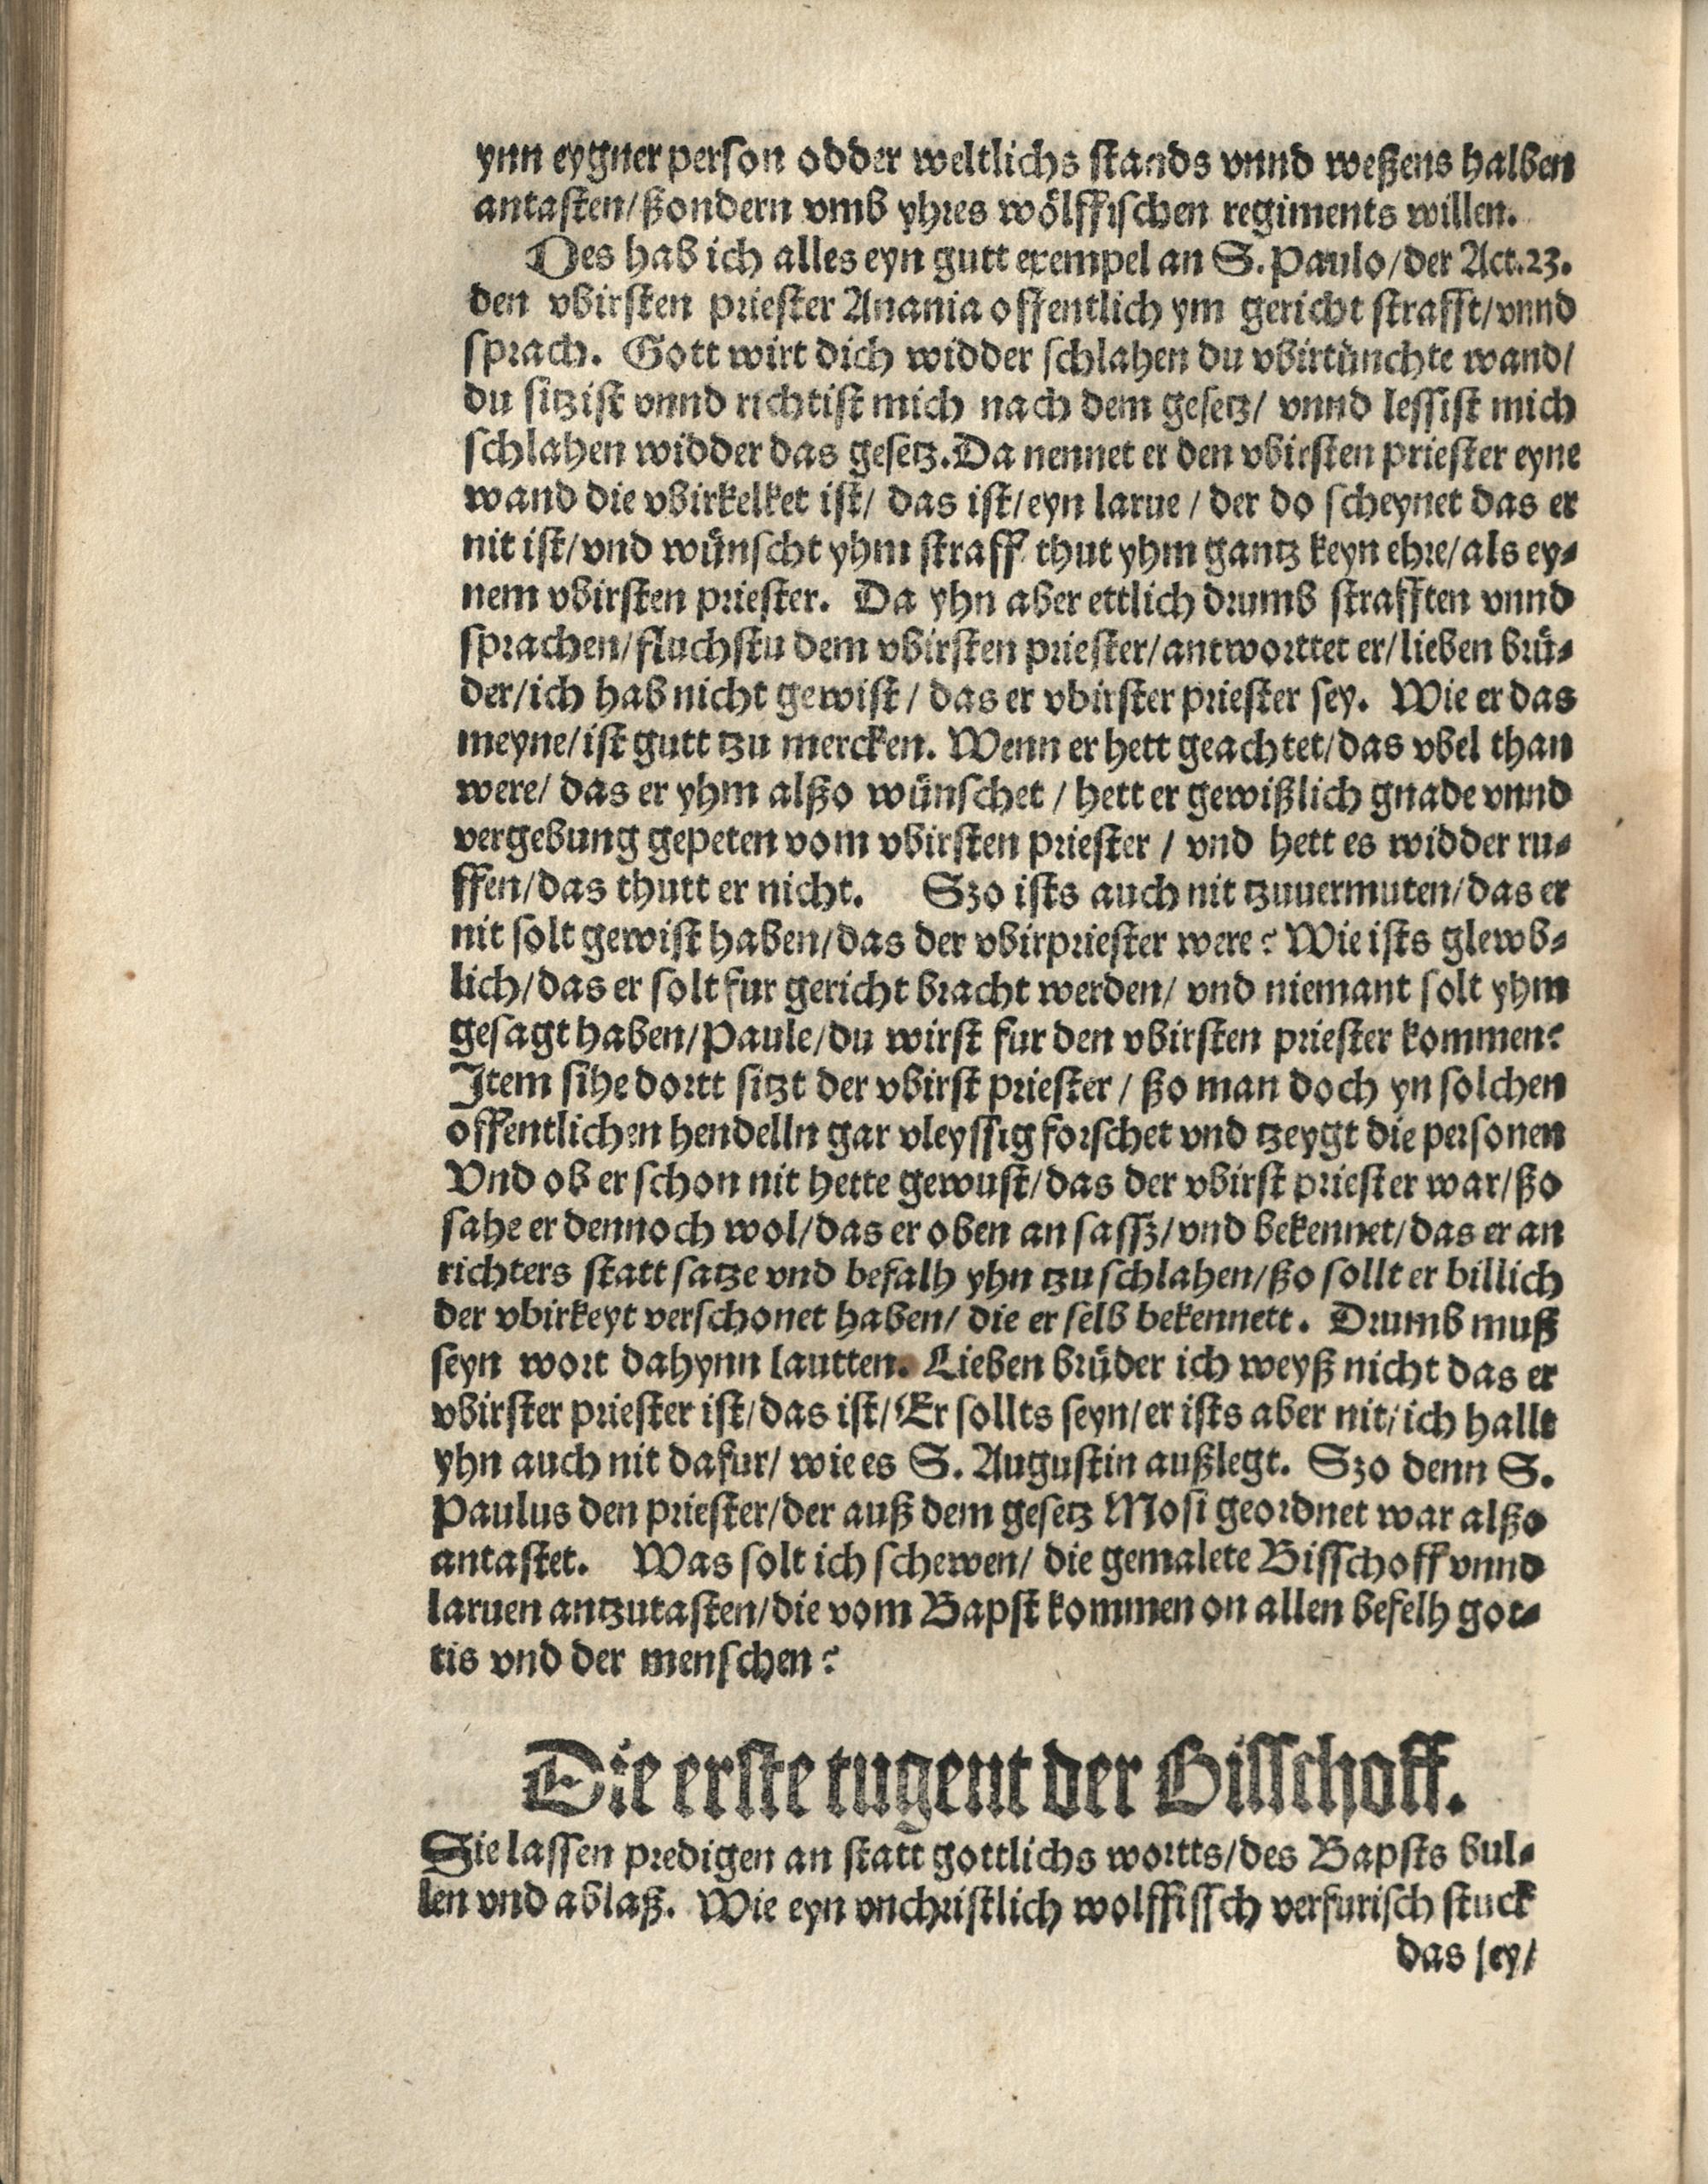 ynn eygner person odder weltlichs stands vnnd weßens halben
antasten/ßondern vmb yhres wölffischen regiments willen.
Des hab ich alles eyn gutt exempel an S. Paulo/der Act.23.
den vbirsten priester Anania offentlich ym gericht strafft/vnnd
sprach. Gott wirt dich widder schlahen du vbirtünchte wand/
du sitzist vnnd richtist mich nach dem gesetz/ vnnd lessist mich
schlahen widder das gesetz. Da nennet er den vbirsten priester eyne
wand die vbirkelket ist/ das ist/eyn larue / der do scheynet das er
nit ist/vnd wünscht yhm straff thut yhm gantz keyn ehre/als ey⸗
nem vbirsten priester. Da yhn aber ettlich drumb strafften vnnd
sprachen/fluchstu dem vbirsten priester/antworttet er/lieben brü⸗
der/ich hab nicht gewist / das er vbirster priester sey. Wie er das
meyne/ist gutt tzu mercken. Wenn er hett geachtet/das vbel than
were/ das er yhm alßo wünschet / hett er gewißlich gnade vnnd
vergebung gepeten vom vbirsten priester / vnd hett es widder ru⸗
ffen/das thutt er nicht. Szo ists auch nit tzuuermuten/das er
nit solt gewist haben/das der vbirpriester were? Wie ists glewb⸗
lich/das er solt fur gericht bracht werden/ vnd niemant solt yhm
gesagt haben/Paule/du wirst fur den vbirsten priester kommen?
Item sihe dortt sitzt der vbirst priester / ßo man doch yn solchen
offentlichen hendelln gar vleyssig forschet vnd tzeygt die personen
Vnd ob er schon nit hette gewust/das der vbirst priester war/ßo
sahe er dennoch wol/das er oben an sassz/vnd bekennet/das er an
richters statt satze vnd befalh yhn tzu schlahen/ßo sollt er billich
der vbirkeyt verschonet haben/ die er selb bekennett. Drumb muß
seyn wort dahynn lautten. Lieben brüder ich weyß nicht das er
vbirster priester ist/das ist/Er sollts seyn/er ists aber nit/ich hallt
yhn auch nit dafur/ wie es S. Augustin außlegt. Szo denn S.
Paulus den priester/der auß dem gesetz Mosi geordnet war alßo
antastet. Was solt ich schewen/ die gemalete Bisschoff vnnd
laruen antzutasten/die vom Bapst kommen on allen befelh got⸗
tis vnd der menschen?
Die erste tugent der Bisschoff.
Sie lassen predigen an statt gottlichs wortts/des Bapsts bul⸗
len vnd ablaß. Wie eyn vnchristlich wolffissch verfurisch stuck
das sey/